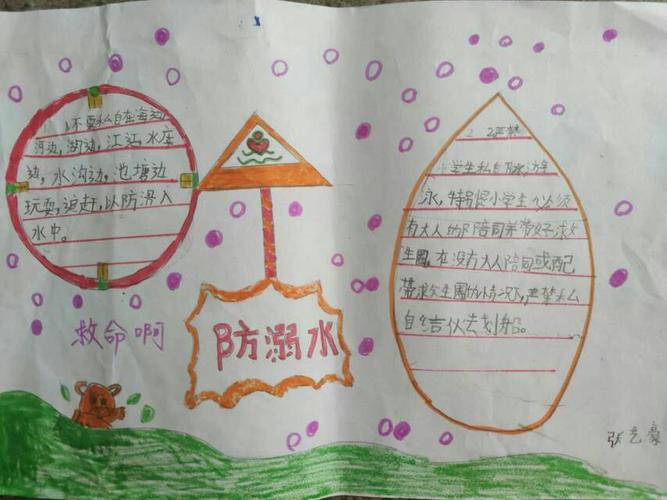 1不要私自在海边
河边,湖边,江边,水库
边,水沟边,池塘边
玩耍,追赶,以防滑入
水中。
救命啊
防溺水
2
小学生私自下水游
泳,特别是小学生必须
有大人的陪同并带好求
生圈,在没有大人陪同或配
带求生圈的情况下,严禁私
自结伙去划船。
张艺豪